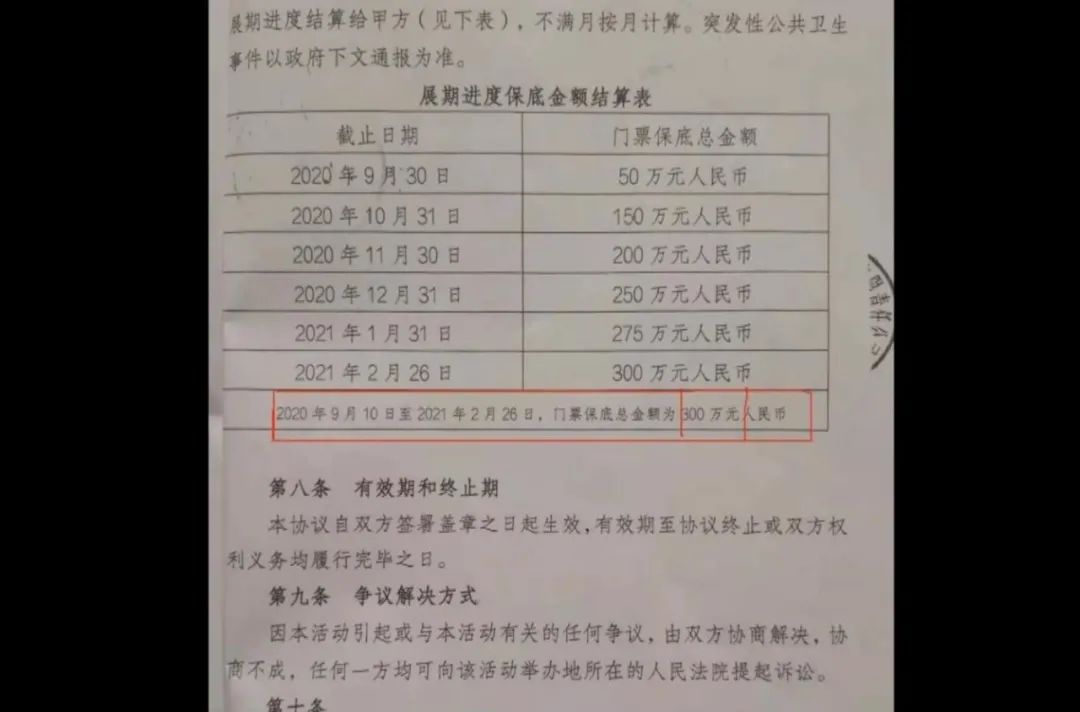 展期进度结算给甲方（见下表），不满月按月计算。突发性公共卫生
事件以政府下文通报为准。
展期进度保底金额结算表
截止日期 门票保底总金额
2020 年 9 月 30 日 50 万元人民币
2020 年 10 月 31 日 150 万元人民币
2020 年 11 月 30 日 200 万元人民币
2020 年 12 月 31 日 250 万元人民币
2021 年 1 月 31 日 275 万元人民币
2021 年 2 月 26 日 300 万元人民币
2020 年 9 月 10 日至 2021 年 2 月 26 日，门票保底总金额为 300 万元人民币
第八条 有效期和终止期
本协议自双方签署盖章之日起生效，有效期至协议终止或双方权
利义务均履行完毕之日。
第九条 争议解决方式
因本活动引起或与本活动有关的任何争议，由双方协商解决，协
商不成，任何一方均可向该活动举办地所在的人民法院提起诉讼。
第十条